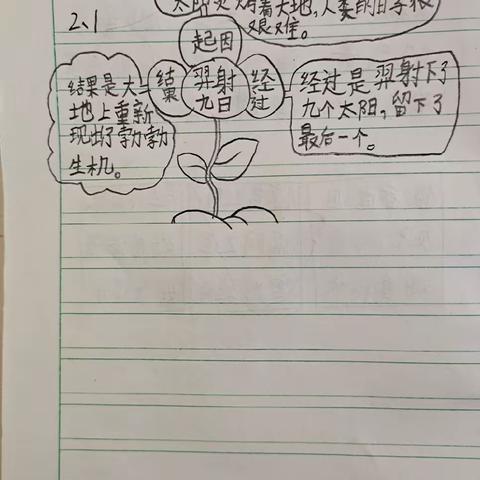 太阳炙烤着大地,人类的日子很
艰难。
2、1
起因
结果
羿射
九日
经过
结果是大
地上重新
现出了勃勃
生机。
经过是羿射下了
九个太阳,留下了
最后一个。